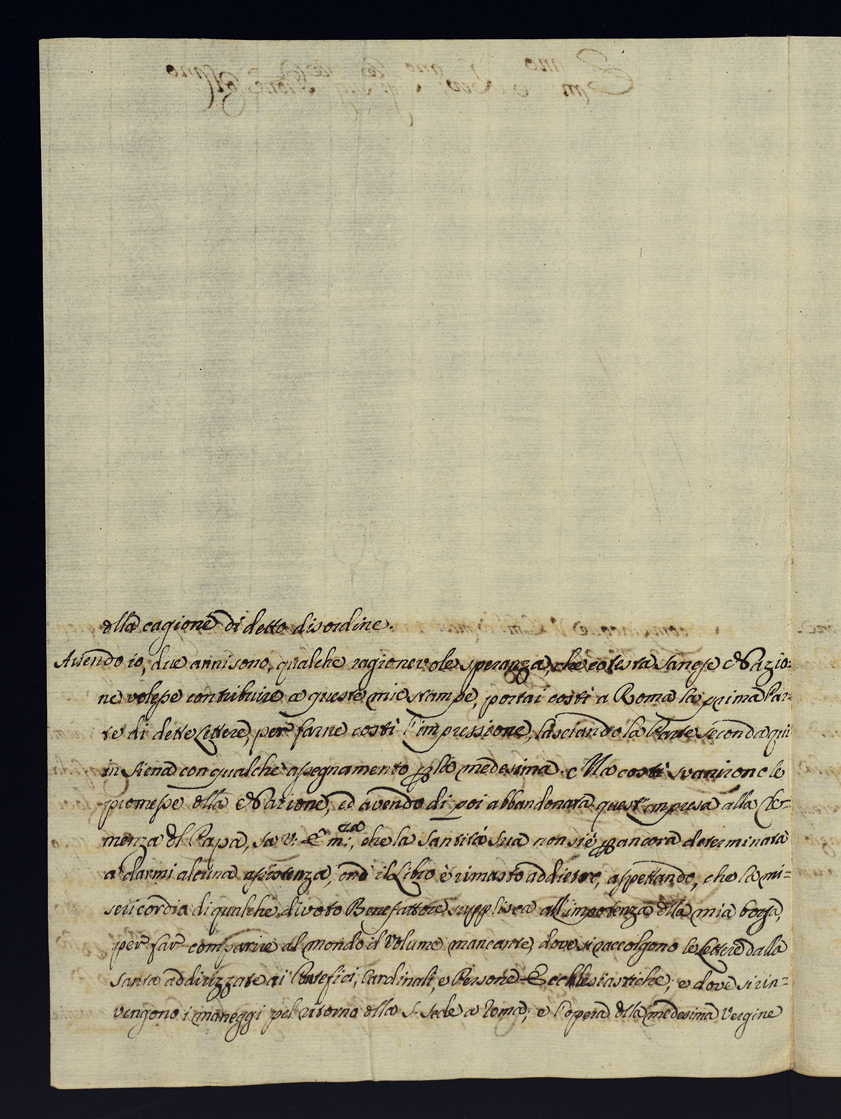 della cagione di detto disordine.
Avendo io, due anni sono, qualche ragionevole speranza, che cotesta Sanese Nazio=
ne volesse contribuire a queste mie stampe, portai costì a Roma la prima Par=
te di dette Lettere, per farne costì l'impressione, lasciando la Parte seconda qui
in Siena con qualche assegnamento per la medesima. Ma costì svanirono le
promesse della Nazione, ed avendo di poi abbandonata quest'impresa alla Cle=
menza del Papa, sa V. Em.za, che la Santità Sua non si è per ancora determinata
a darmi alcuna assistenza, onde il Libro è rimasto addietro, aspettando, che la mi=
sericordia di qualche divoto Benefattore supplisca all'impotenza della mia borsa
per far comparire al mondo il Volume mancante, dove si raccolgono le Lettere dalla
Santa addirizzate ai Pontefici, Cardinali, e Persone Ecclesiastiche; e dove si rin=
vengono i maneggi pel ritorno della S. Sede a Roma; e l'opera della medesima Vergine